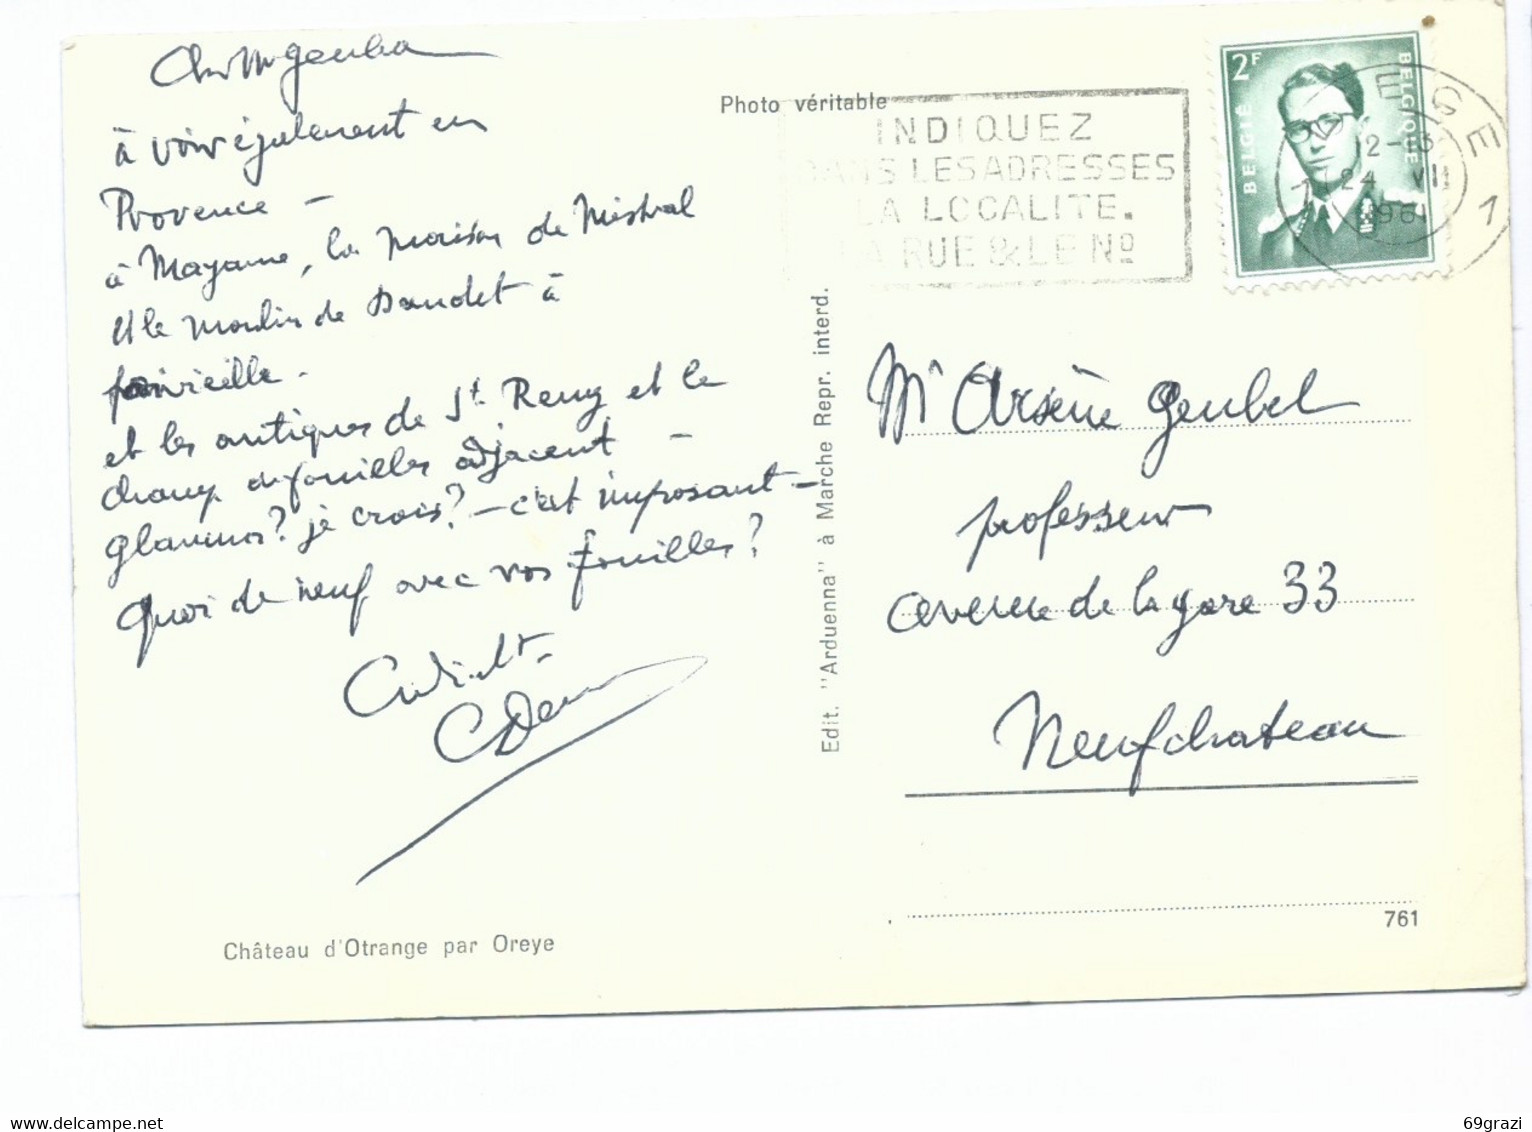 Cher Mr Geubel
à voir également en
Provence –
à Mayanne, la maison de Mistral
et le moulin de Daudet à
Fonvieille.
et les antiques de St. Remy et le
champ de fouilles adjacent –
glanum? je crois? – c'est imposant –
Quoi de neuf avec vos fouilles?
Cordialt.
Château d'Otrange par Oreye
Photo véritable
Edit. "Arduenna" à Marche Repr. interd.
INDIQUEZ
DANS LES ADRESSES
LA LOCALITE.
LA RUE & LE No
2F
BELGIË
BELGIQUE
12-13
24 VII
1
Mr Arsène Geubel
professeur
avenue de la gare 33
Neufchateau
761
69grazi